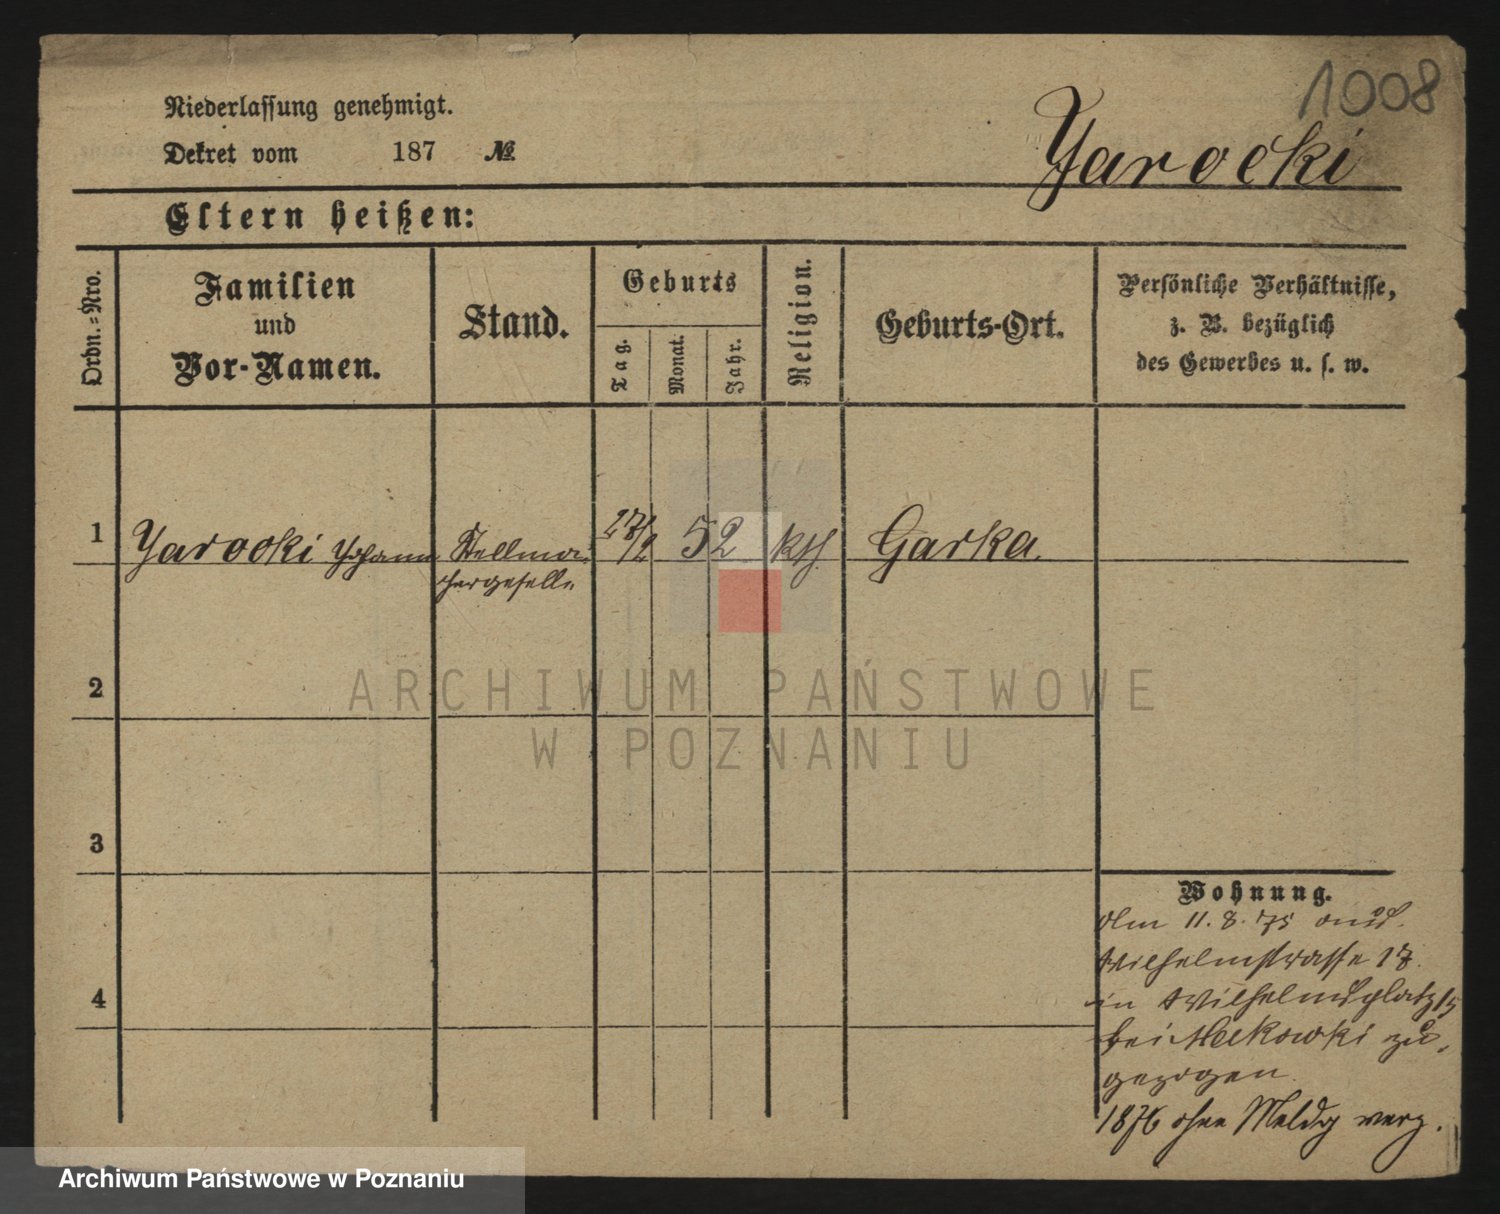 1008
Niederlassung genehmigt.
Dekret vom 187 №
Yarocki
Eltern heißen:
Ordn.-Nro.
Familien
und
Vor-Namen.
Stand.
Geburts
Tag.
Monat.
Jahr.
Religion.
Geburts-Ort.
Persönliche Verhältnisse,
z. B. bezüglich
des Gewerbes u. s. w.
1 Yarocki Johann Stellma- 27/2 52 kth. Garka.
chergeselle
2
3
4
Wohnung.
Am 11. 8. 75 aus
Wilhelmstrasse 17
in Wilhelmsplatz 15
bei zu-
gezogen.
1876 ohne Meldg verz.
ARCHIWUM PAŃSTWOWE
W POZNANIU
Archiwum Państwowe w Poznaniu